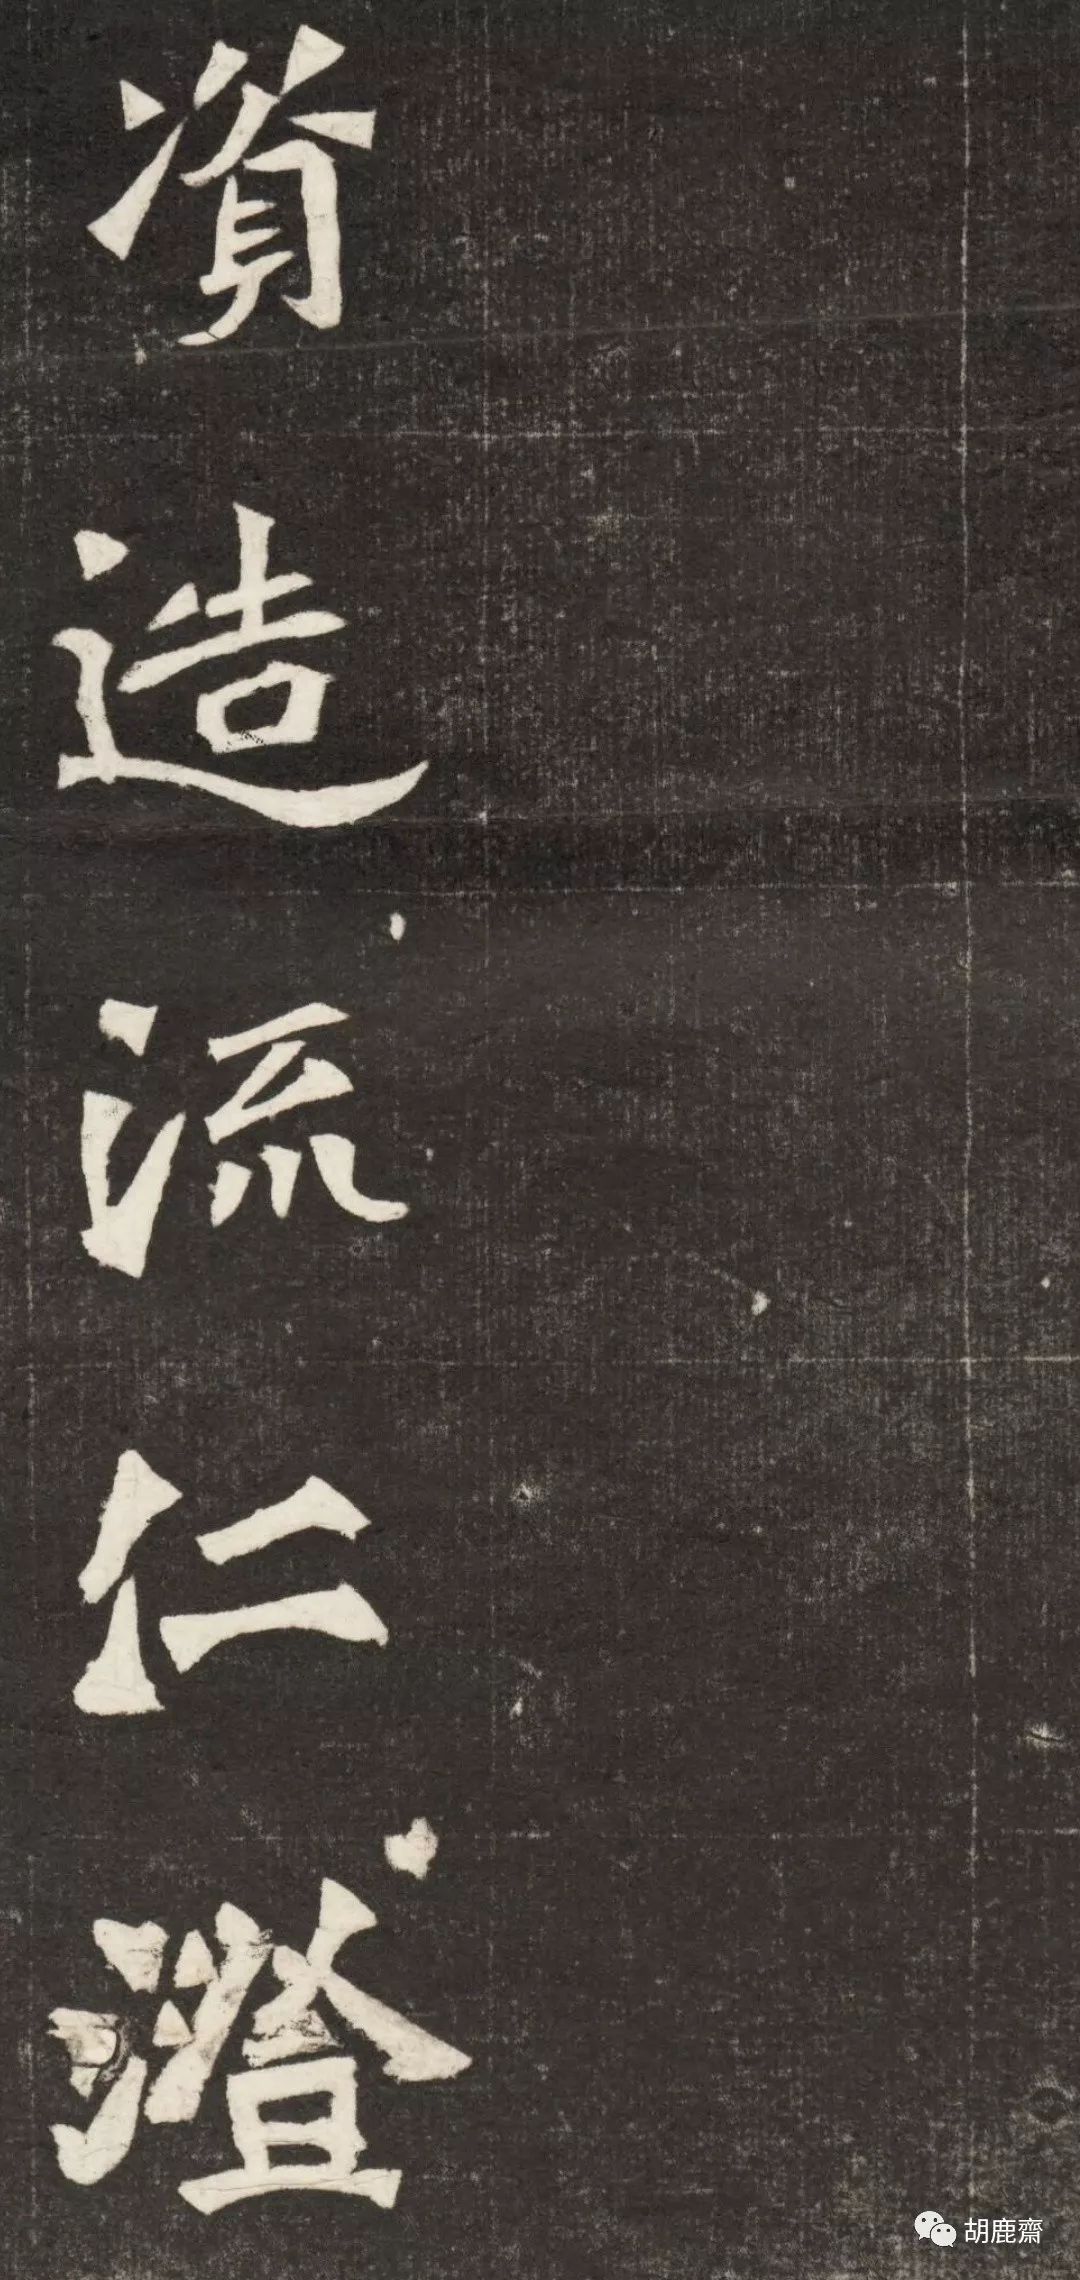 資造流仁澄
胡鹿齋